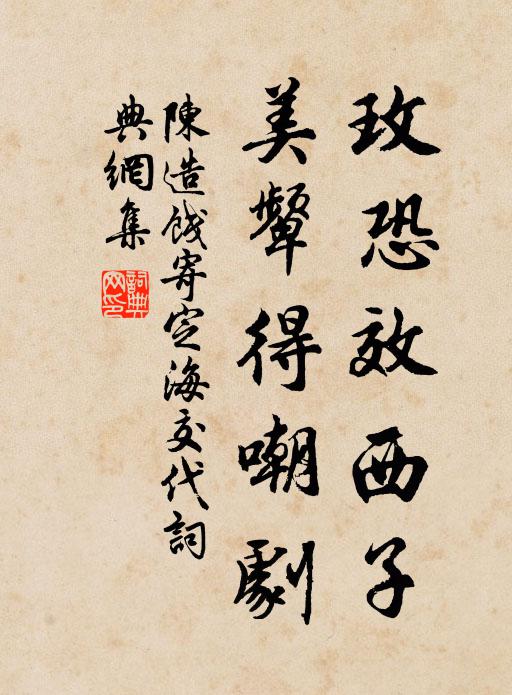 玫恐效西子
美顰得嘲劇
陳造餞寄定海交代詞
典網集
詞典网印